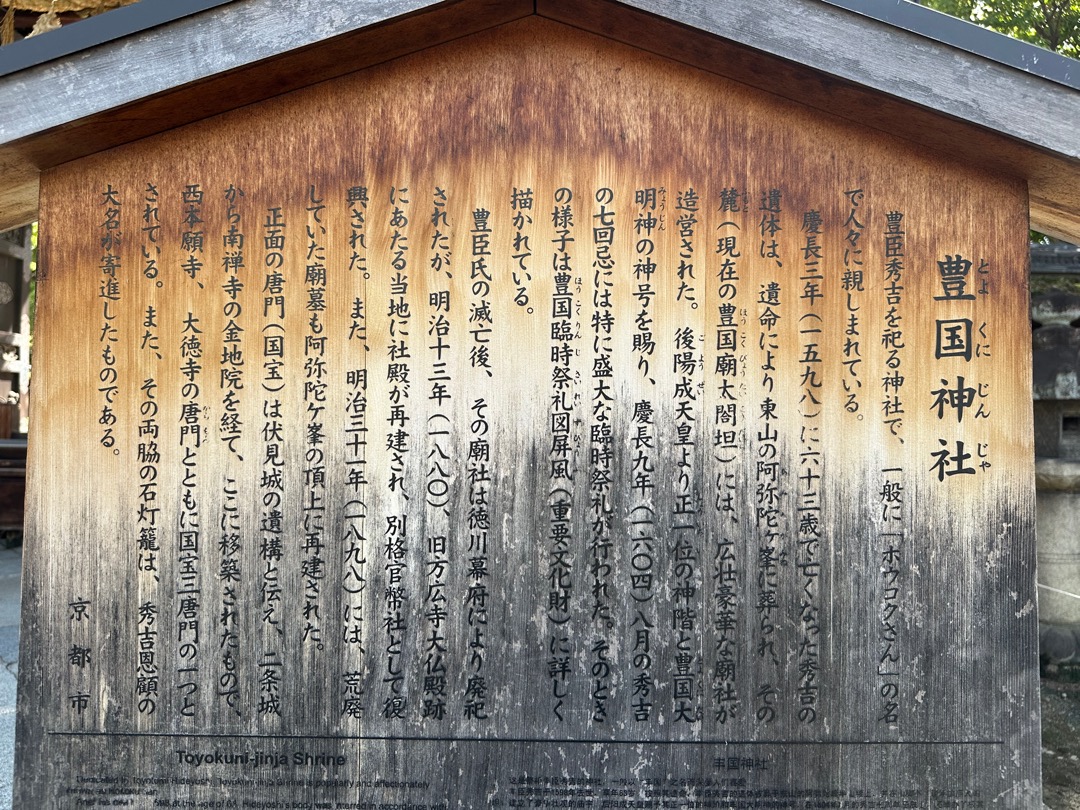 豊国神社
とよくにじんじゃ
豊臣秀吉を祀る神社で、一般に「ホウコクさん」の名
で人々に親しまれている。
慶長三年(一五九八)に六十三歳で亡くなった秀吉の
遺体は、遺命により東山の阿弥陀ヶ峯に葬られ、その
麓(現在の豊国廟太閤坦)には、広壮豪華な廟社が
造営された。後陽成天皇より正一位の神階と豊国大
明神の神号を賜り、慶長九年(一六〇四)八月の秀吉
の七回忌には特に盛大な臨時祭礼が行われた。そのとき
の様子は豊国臨時祭礼図屏風(重要文化財)に詳しく
描かれている。
豊臣氏の滅亡後、その廟社は徳川幕府により廃祀
されたが、明治十三年(一八八〇)、旧方広寺大仏殿跡
にあたる当地に社殿が再建され、別格官幣社として復
興された。また、明治三十一年(一八九八)には、荒廃
していた廟墓も阿弥陀ケ峯の頂上に再建された。
正面の唐門(国宝)は伏見城の遺構と伝え、二条城
から南禅寺の金地院を経て、ここに移築されたもので、
西本願寺、大徳寺の唐門とともに国宝三唐門の一つと
されている。また、その両脇の石灯籠は、秀吉恩顧の
大名が寄進したものである。
京都市
Toyokuni-jinja Shrine
Dedicated to Toyotomi Hideyoshi, Toyokuni-jinja Shrine is popularly and affectionately
at the age of 61. Hideyoshi's body was interred in accordance with
丰国神社